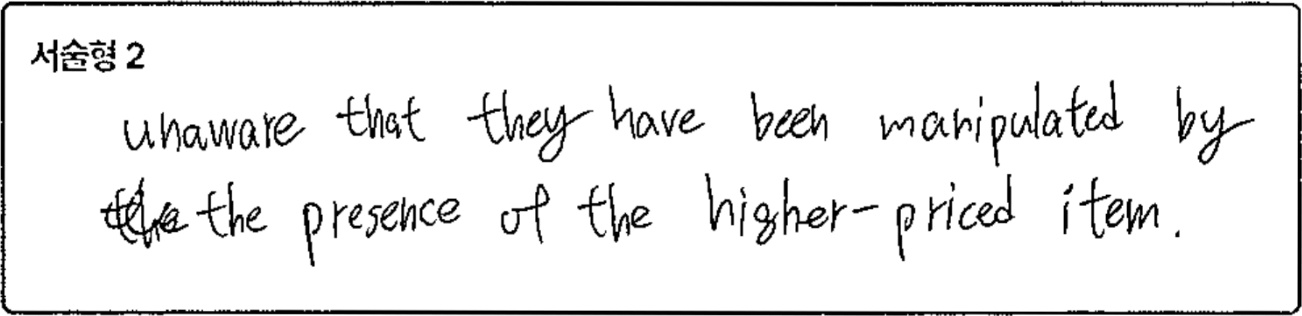 서술형 2
unaware that they have been manipulated by
the presence of the higher-priced item.